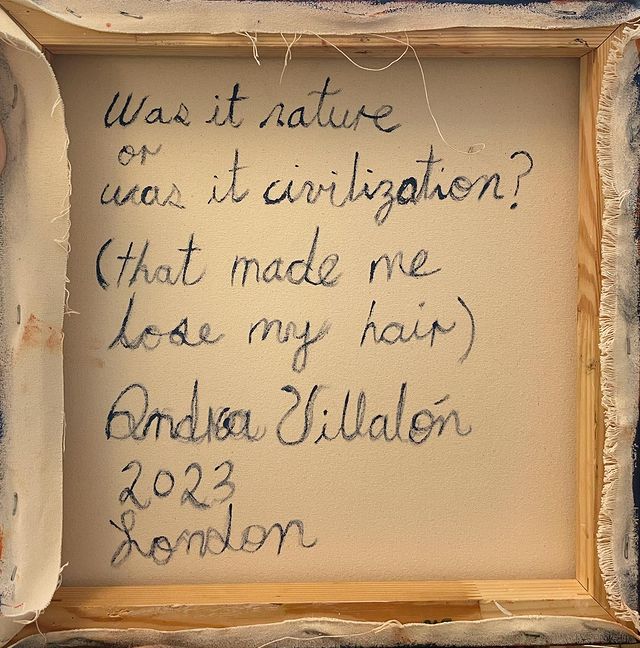 Was it nature
or
was it civilization?
(that made me
lose my hair)
Andrea Villalón
2023
London